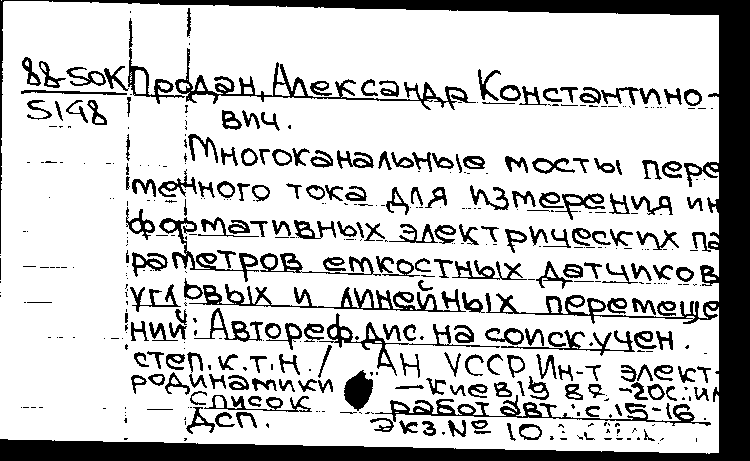 88-50К Продан, Александр Константино-
5148 вич.
Многоканальные мосты пере
менного тока для измерения ин
формативных электрических па
раметров емкостных датчиков
угловых и линейных перемеще
ний: Автореф.дис. на соиск.учен.
степ. к.т.н. / АН УССР. Ин-т элект-
родинамики — Киев, 19 -20с.: ил
Список работ авт.: с.15-16.
ДСП. Экз.№ 10.